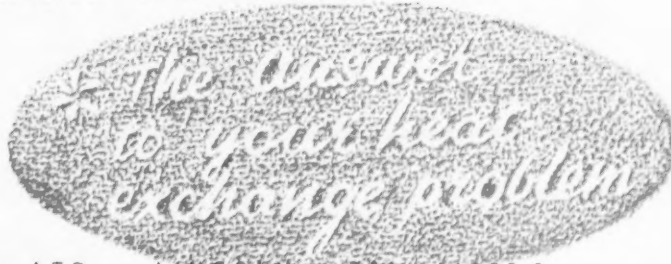 * The answer
to your heat
exchange problem